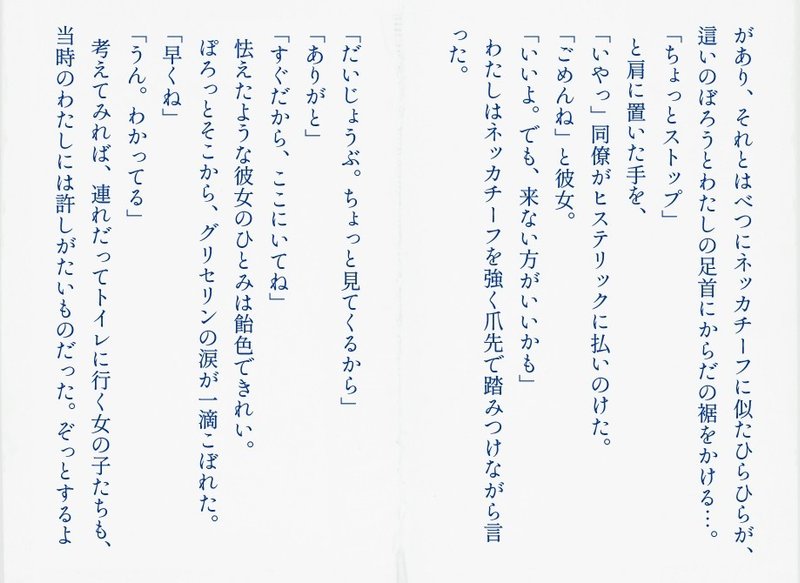 があり、それとはべつにネッカチーフに似たひらひらが、
這いのぼろうとわたしの足首にからだの裾をかける…。
「ちょっとストップ」
と肩に置いた手を、
「いやっ」同僚がヒステリックに払いのけた。
「ごめんね」と彼女。
「いいよ。でも、来ない方がいいかも」
わたしはネッカチーフを強く爪先で踏みつけながら言
った。
「だいじょうぶ。ちょっと見てくるから」
「ありがと」
「すぐだから、ここにいてね」
怯えたような彼女のひとみは飴色できれい。
ぽろっとそこから、グリセリンの涙が一滴こぼれた。
「早くね」
「うん。わかってる」
考えてみれば、連れだってトイレに行く女の子たちも、
当時のわたしには許しがたいものだった。ぞっとするよ